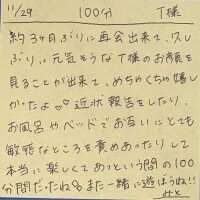 11/29 100分 T様
約3ヶ月ぶりに再会出来て、久し
ぶりに元気そうなT様のお顔を
見ることが出来て、めちゃくちゃ嬉し
かったよ♡♡ 近状報告をしたり、
お風呂やベッドでお互いにとても
敏感なところを責めあったりして
本当に楽しくてあっという間の100
分間だったね♡また一緒に遊ぼうね!!
みと